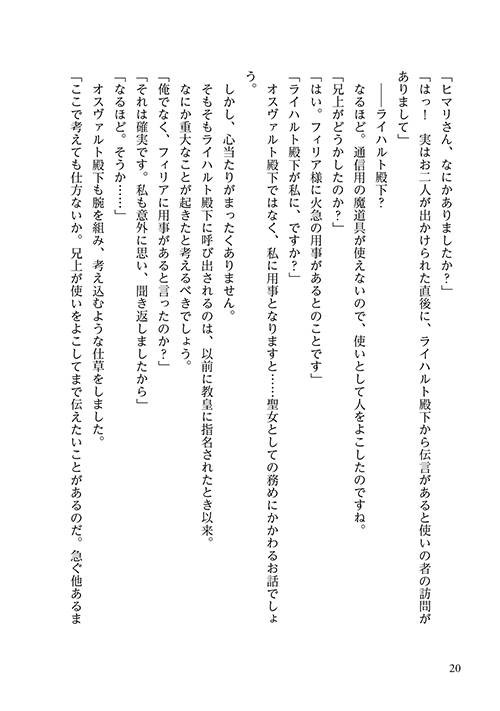 「ヒマリさん、なにかありましたか？」
「はっ！　実はお二人が出かけられた直後に、ライハルト殿下から伝言があると使いの者の訪問が
ありまして」
――ライハルト殿下？
なるほど。通信用の魔道具が使えないので、使いとして人をよこしたのですね。
「兄上がどうかしたのか？」
「はい。フィリア様に火急の用事があるとのことです」
「ライハルト殿下が私に、ですか？」
オスヴァルト殿下ではなく、私に用事となりますと……聖女としての務めにかかわるお話でしょ
う。
しかし、心当たりがまったくありません。
そもそもライハルト殿下に呼び出されるのは、以前に教皇に指名されたとき以来。
なにか重大なことが起きたと考えるべきでしょう。
「俺でなく、フィリアに用事があると言ったのか？」
「それは確実です。私も意外に思い、聞き返しましたから」
「なるほど。そうか……」
オスヴァルト殿下も腕を組み、考え込むような仕草をしました。
「ここで考えても仕方ないか。兄上が使いをよこしてまで伝えたいことがあるのだ。急ぐ他あるま
20